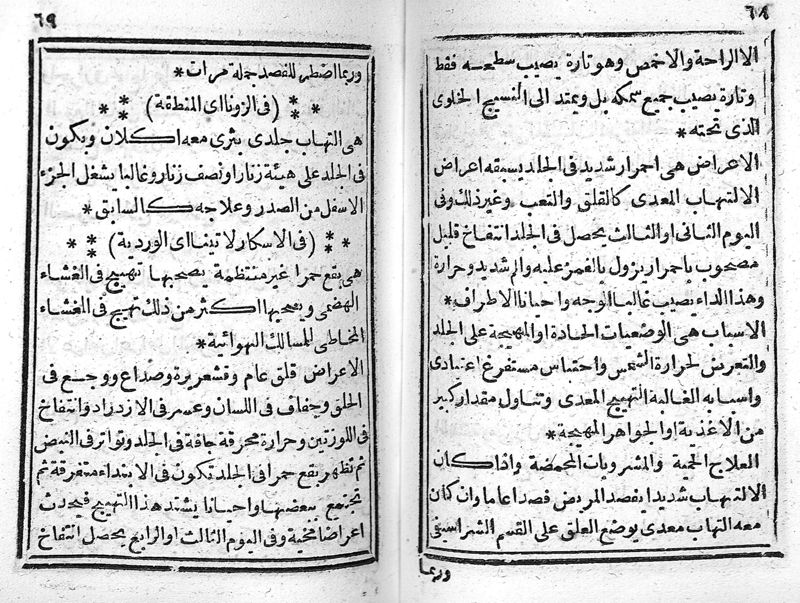 ٦٨
الا الراحة والاخمص وهو تارة يصيب سطيعه فقط
وتارة يصيب جميع سمكه بل ويمتد الى النسيج الخلوى
الذى تحته *
الاعراض هى احمرار شديد فى الجلد يسبقه اعراض
الالتهاب المعدى كالقلق والتعب وغير ذلك وفى
اليوم الثانى او الثالث يحصل فى الجلد انتفاخ قليل
مصحوب باحمرار يزول بالغمز عليه والم شديد وحرارة
وهذا الداء يصيب غالبا الوجه واحيانا الاطراف *
الاسباب هى الوضعيات الحادة او المهيجة على الجلد
والتعريض لحرارة الشمس واحتباس مستفرغ اعتيادى
واسبابه الغالبة التهيج المعدى وتناول مقدار كبير
من الاغذية او الجواهر المهيجة *
العلاج الحمية والمشروبات المحمضة واذا كان
الالتهاب شديدا يفصد المريض فصدا عاما وان كان
معه التهاب معدى يوضع العلق على القسم الشراسيفى
وربما
٦٩
وربما اضطر للفصد جملة مرات *
* * (فى الزونا اى المنطقة) * *
هى التهاب جلدى بثرى معه اكلان ويكون
فى الجلد على هيئة زنار او نصف زنار وغالبا يشغل الجزء
الاسفل من الصدر وعلاجه كالسابق *
* * (فى الاسكارلاتينا اى الوردية) * *
هى بقع حمرا غير منتظمة يصحبها تهييج فى الغشاء
الهضمى ويصحبها اكثر من ذلك تهيج فى الغشاء
المخاطى للمسالك الهوائية *
الاعراض قلق عام وقشعريرة وصداع ووجع فى
الحلق وجفاف فى اللسان وعسر فى الازدراد وانتفاخ
فى اللوزتين وحرارة محرقة جافة فى الجلد وتواتر فى النبض
ثم تظهر بقع حمرا فى الجلد تكون فى الابتداء متفرقة ثم
تجتمع ببعضها واحيانا يشتد هذا التهيج فيحدث
اعراضا مخية وفى اليوم الثالث او الرابع يحصل انتفاخ